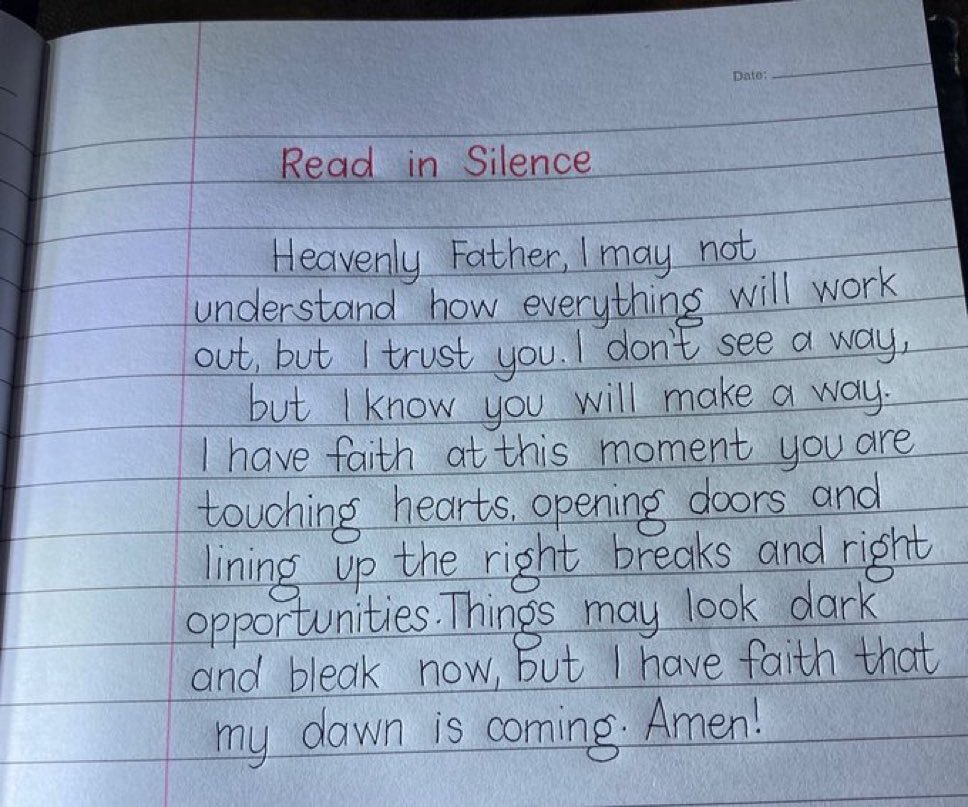 Date:
Read in Silence
Heavenly Father, I may not
understand how everything will work
out, but I trust you. I don't see a way,
but I know you will make a way.
I have faith at this moment you are
touching hearts, opening doors and
lining up the right breaks and right
opportunities. Things may look dark
and bleak now, but I have faith that
my dawn is coming. Amen!